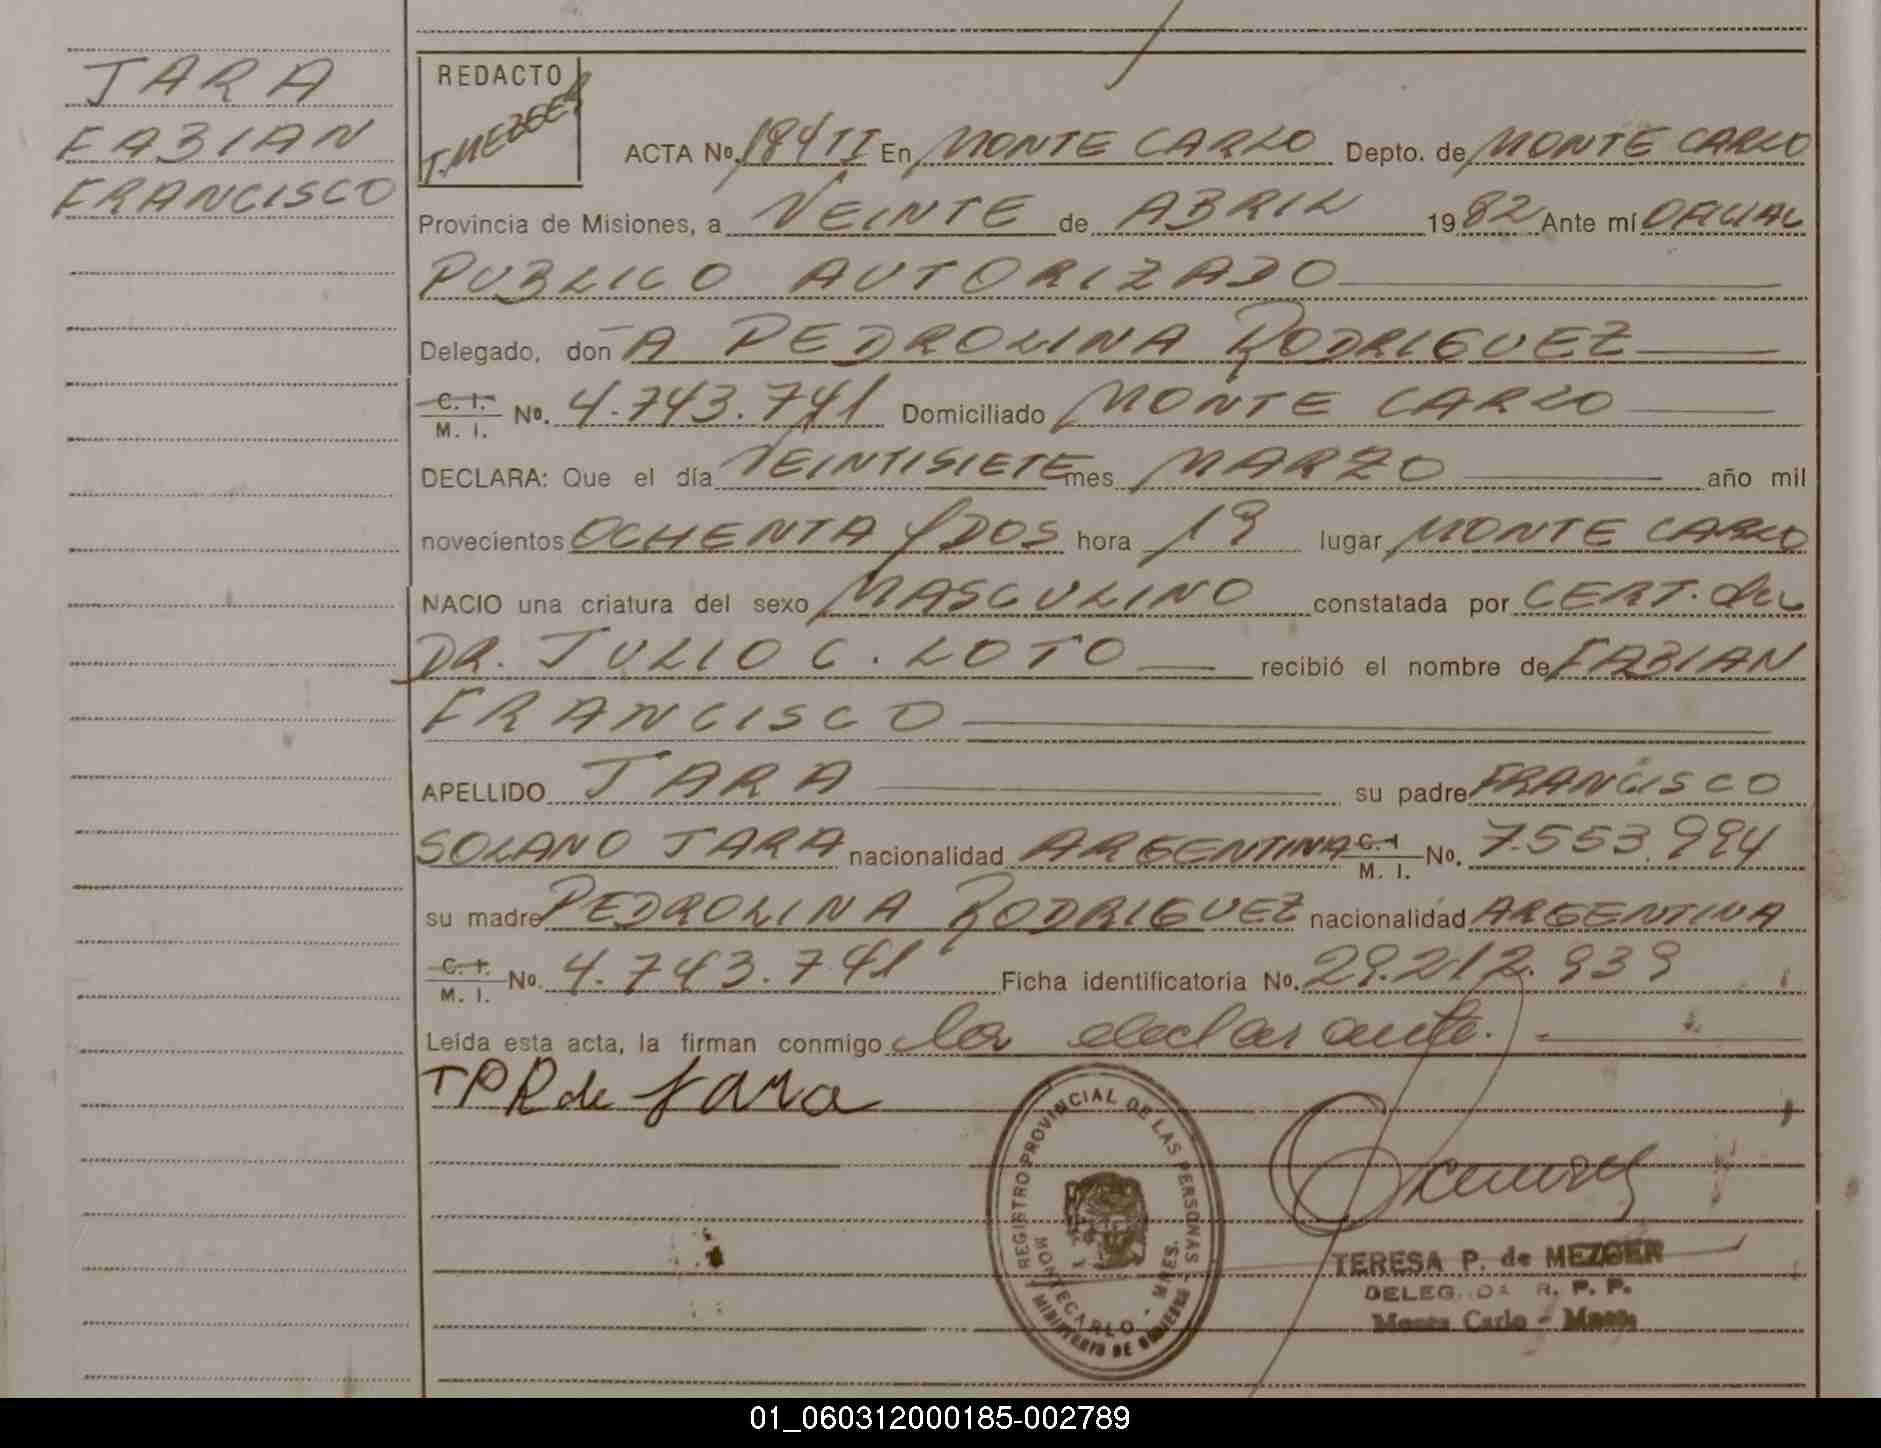 JARA
FABIAN
FRANCISCO
REDACTO
T. MEZGER
ACTA No. 184 II En MONTE CARLO Depto. de MONTE CARLO
Provincia de Misiones, a VEINTE de ABRIL 1982 Ante mí OFICIAL
PUBLICO AUTORIZADO
Delegado, don A PEDROLINA RODRIGUEZ
C. I. / M. I. No. 4.743.741 Domiciliado MONTE CARLO
DECLARA: Que el día VEINTISIETE mes MARZO año mil
novecientos OCHENTA Y DOS hora 19 lugar MONTE CARLO
NACIO una criatura del sexo MASCULINO constatada por CERT. del
DR. JULIO C. LOTO recibió el nombre de FABIAN
FRANCISCO
APELLIDO JARA su padre FRANCISCO
SOLANO JARA nacionalidad ARGENTINA C. I / M. I. No. 7.553.994
su madre PEDROLINA RODRIGUEZ nacionalidad ARGENTINA
C. I. / M. I. No. 4.743.741 Ficha identificatoria No. 29.212.939
Leída esta acta, la firman conmigo la declarante.
TPR de Jara
REGISTRO PROVINCIAL DE LAS PERSONAS
MONTECARLO - MNES.
MINISTERIO DE GOBIERNO
TERESA P. de MEZGER
DELEGADA R. P. P.
Monte Carlo - Mnes.
01_060312000185-002789